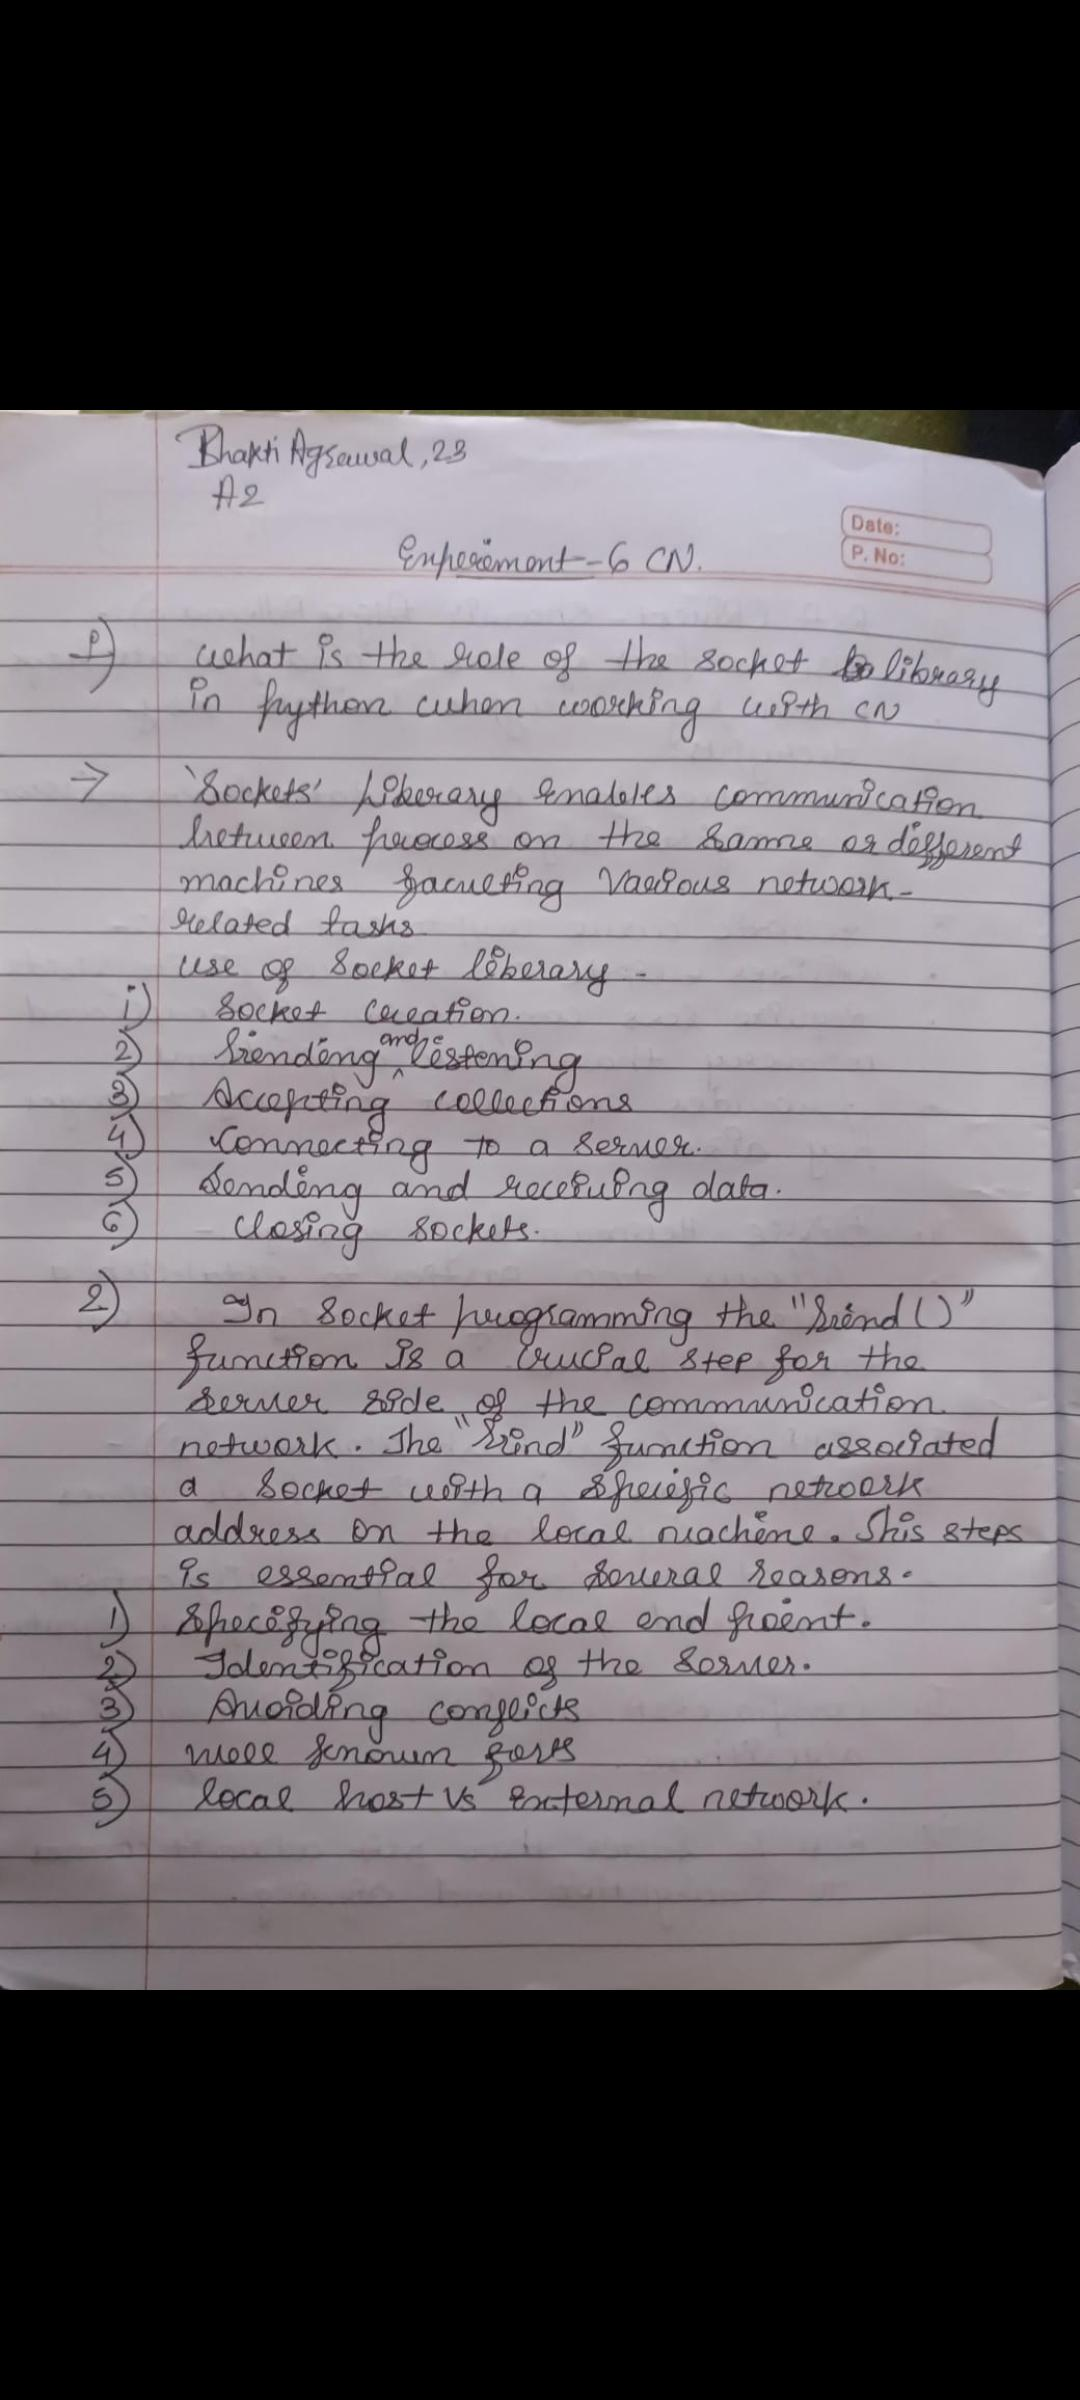 Bhakti Agrawal, 23
A2
Date:
P. No:
Experiment-6 CN.
1) what is the role of the socket library
in python when working with CN
→ 'Sockets' Liberary enables communication
between process on the same or different
machines various network-
related tasks
use of socket liberary -
i) Socket creation.
2) Binding and listening
3) Accepting collections
4) Connecting to a server.
5) Sending and receiving data.
6) - Closing sockets.
2) In socket programming the "bind ()"
function is a crucial step for the
server side of the communication
network. The "bind" function associated
a socket with a specific network
address on the local machine. This steps
is essential for several reasons.
1) Specifying the local end point.
2) Identification of the server.
3) Avoiding conflicts
4) well known ports
5) local host vs external network.